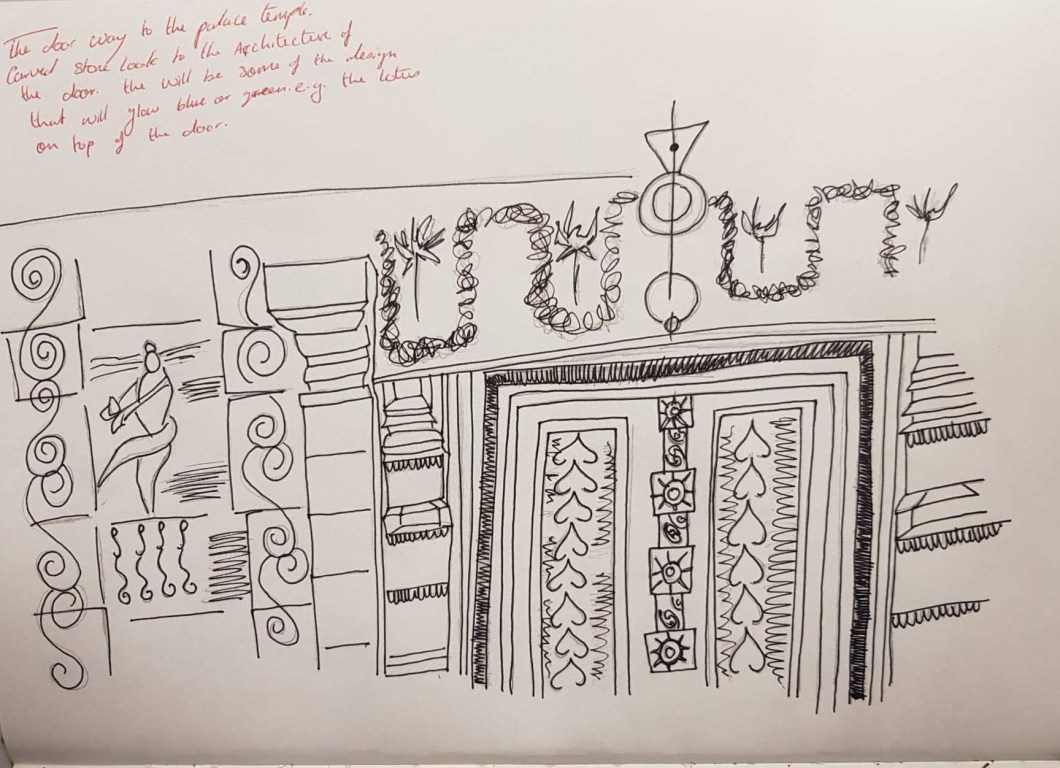 The door way to the palace temple.
Carved stone look to the Architecture of
the door. the will be some of the design
that will glow blue or green. e.g. the lotus
on top of the door.